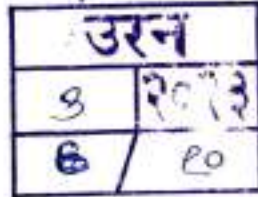 उरन
९ २०१३
६ / १०